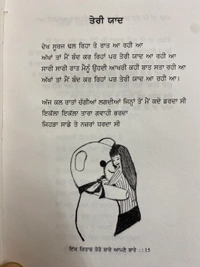 ਤੇਰੀ ਯਾਦ
ਦੇਖ ਸੂਰਜ ਢਲ ਰਿਹਾ ਤੇ ਰਾਤ ਆ ਰਹੀ ਆ
ਅੱਖਾਂ ਤਾਂ ਮੈਂ ਬੰਦ ਕਰ ਰਿਹਾਂ ਪਰ ਤੇਰੀ ਯਾਦ ਆ ਰਹੀ ਆ
ਸਾਰੀ ਸਾਰੀ ਰਾਤ ਮੈਨੂੰ ਉਹਦੀ ਆਖਰੀ ਕਹੀ ਬਾਤ ਸਤਾ ਰਹੀ ਆ
ਅੱਖਾਂ ਤਾਂ ਮੈਂ ਬੰਦ ਕਰ ਰਿਹਾਂ ਪਰ ਤੇਰੀ ਯਾਦ ਆ ਰਹੀ ਆ।
ਅੱਜ ਕਲ ਰਾਤਾਂ ਚੰਗੀਆਂ ਲਗਦੀਆਂ ਜਿਨ੍ਹਾਂ ਤੋਂ ਮੈਂ ਕਦੇ ਡਰਦਾ ਸੀ
ਇਕੱਲਾ ਇਕੱਲਾ ਤਾਰਾ ਗਵਾਹੀ ਭਰਦਾ
ਜਿਹੜਾ ਸਾਡੇ ਤੇ ਨਜ਼ਰਾਂ ਧਰਦਾ ਸੀ
ਇਕ ਕਿਤਾਬ ਤੇਰੇ ਬਾਰੇ ਆਪਣੇ ਬਾਰੇ :: 15